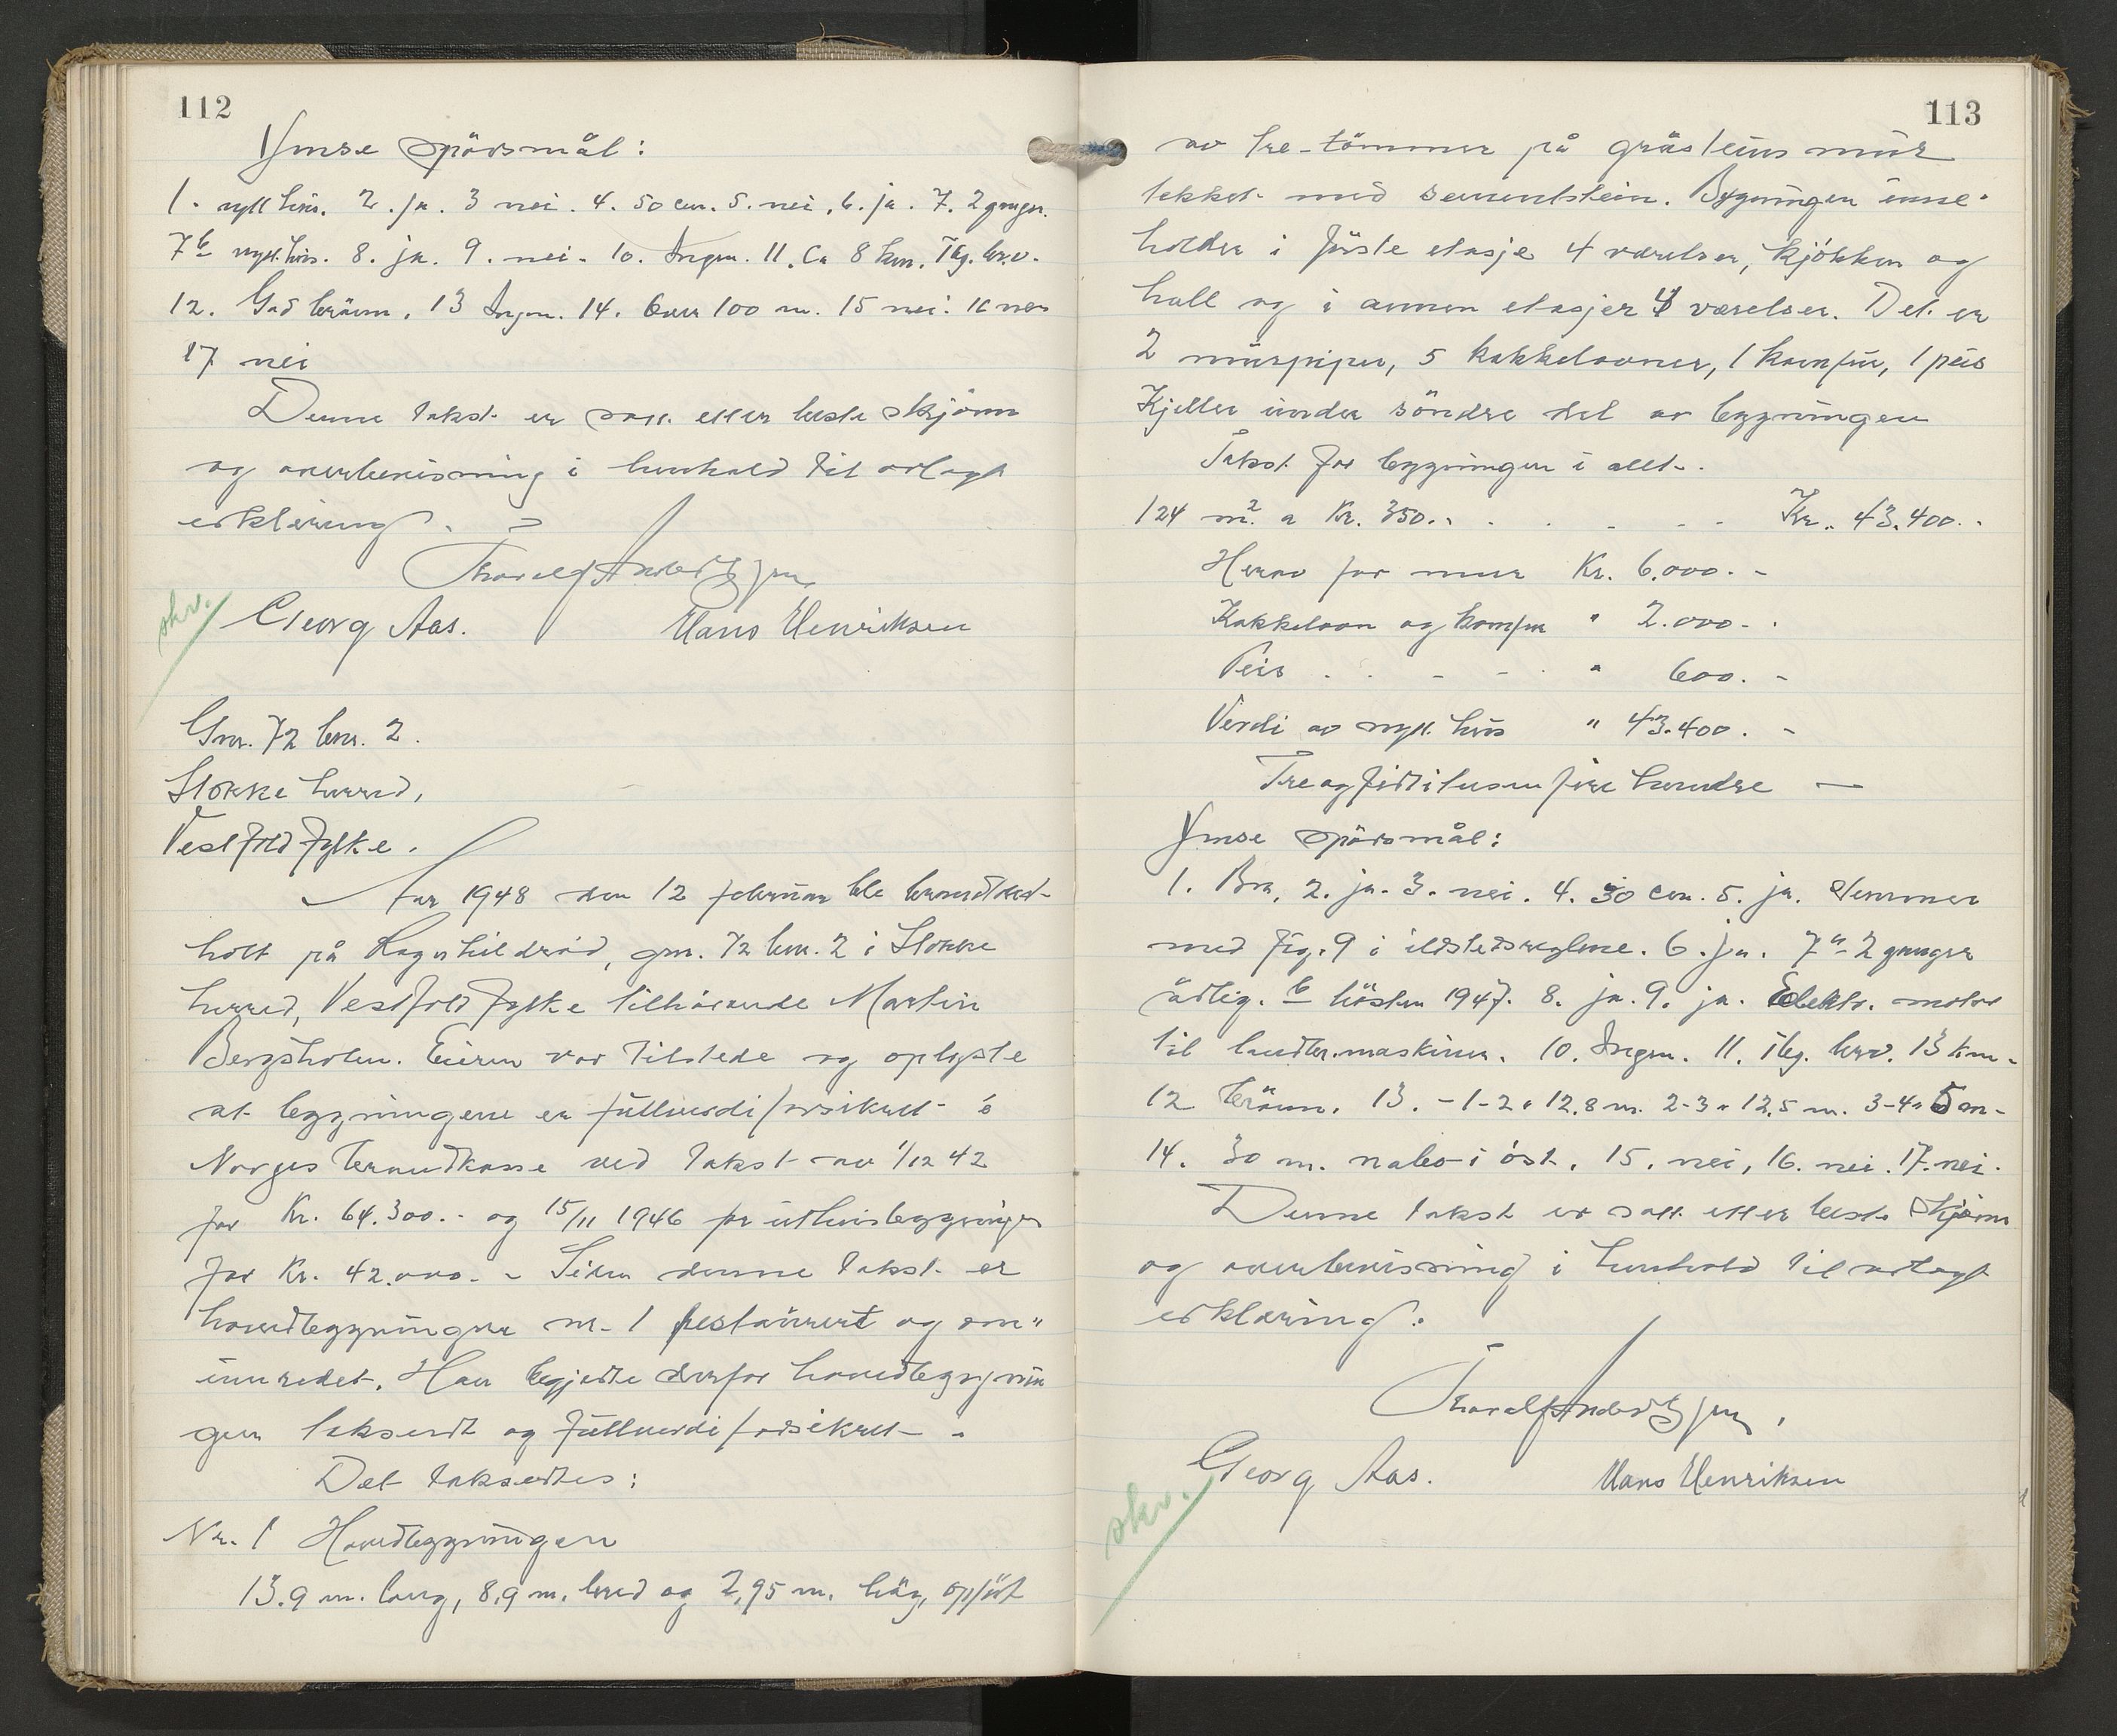 112
Ymse spörsmål:
1. nytt hus. 2. ja. 3 nei. 4. 50 cm. 5. nei. 6. ja. 7. 2 ganger.
7b nytt hus. 8. ja. 9. nei. 10. Ingen. 11. Ca 8 km. Tbg. br.v.
12. God brönn. 13 Ingen. 14. Over 100 m. 15 nei. 16 nei
17 nei
Denne takst er satt etter beste skjönn
og overbevisning i henhold til avlagt
erklæring.
Georg Aas. Hans Henriksen
skr.
Gnr. 72 bnr. 2.
Stokke herred,
Vestfold fylke.
År 1948 den 12 februar ble branntakst
holt på Ragnhildröd, gnr. 72 bnr. 2 i Stokke
herred, Vestfold fylke tilhörende Martin
Bergsholm. Eieren var tilstede og oplyste
at bygningene er fullverdiforsikret i
Norges brannkasse ved takst av 1/12 42
for Kr. 64.300.- og 15/11 1946 for uthusbygningen
for Kr. 42.000.- Siden denne takst er
hovedbygningen nr. 1 restaurert og om"
innredet. Han begjerte derfor hovedbygnin
gen taksert og fullverdiforsikret.
Det taksertes:
Nr. 1 Hovedbygningen
13.9 m. lang, 8,9 m. bred og 2,95 m. höy, oppfört
113
av tre-tömmer på gråsteinsmur
tekket med sementstein. Bygningen inne-
holder i förste etasje 4 værelser, kjökken og
hall og i annen etasjer 4 værelser. Det er
2 murpiper, 5 kakkelovner, 1 komfur, 1 peis
Kjeller under söndre del av bygningen
Takst for bygningen i allt.
124 m2. a Kr. 350.- . . . - - Kr. 43.400.-
Herav for mur Kr. 6.000.-
Kakkelovn og komfur " 2.000.-
Peis . . - - . " 600.-
Verdi av nytt hus " 43.400.-
Treogførtitusenfire hundre —
Ymse spörsmål:
1. Bra, 2. ja. 3. nei. 4. 30 cm. 5. ja. Stemmer
med fig. 9 i ildstedsreglene. 6. ja. 7a 2 ganger
årlig. b hösten 1947. 8. ja. 9. ja. Elektr. motor
til landbr.maskiner. 10. Ingen. 11. Tbg. brv. 13 km.
12 brönn. 13. - 1-2 = 12,8 m. 2-3 = 12,5 m. 3-4 = 5 m.
14. 30 m. nabo i öst. 15. nei, 16. nei. 17. nei.
Denne takst er satt etter beste skjönn
og overbevisning i henhold til avlagt
erklæring.
Georg Aas. Hans Henriksen
skr.